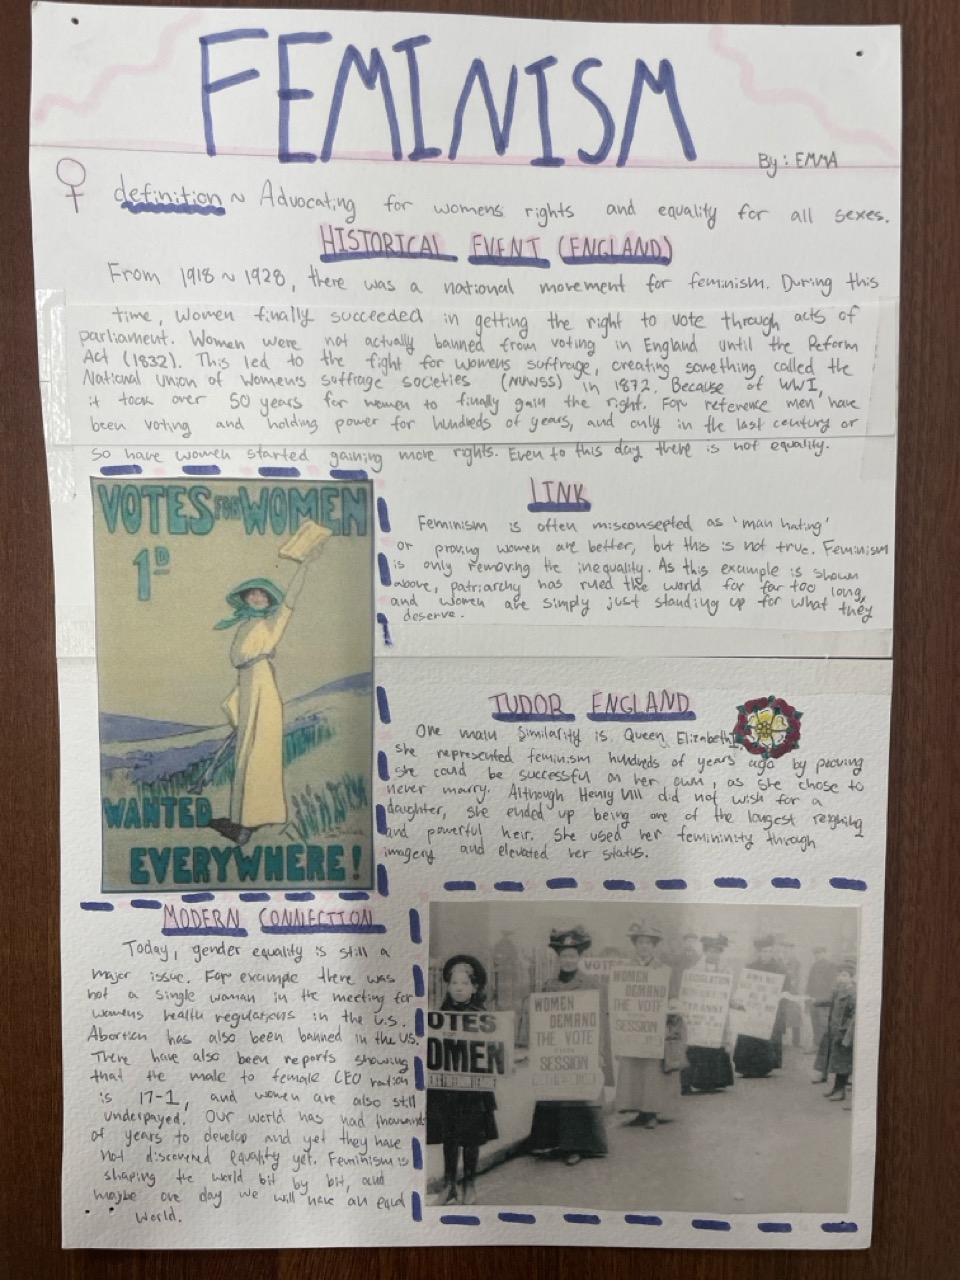 FEMINISM
By: EMMA
definition ~ Advocating for womens rights and equality for all sexes.
HISTORICAL EVENT (ENGLAND)
From 1918 ~ 1928, there was a national movement for feminism. During this
time, women finally succeeded in getting the right to vote through acts of
parliament. Women were not actually banned from voting in England until the Reform
Act (1832). This led to the fight for womens suffrage, creating something called the
National Union of Women's suffrage societies (NUWSS) in 1872. Because of WWI,
it took over 50 years for women to finally gain the right. For reference men have
been voting and holding power for hundreds of years, and only in the last century or
so have women started gaining more rights. Even to this day there is not equality.
VOTES FOR WOMEN
1D
WANTED
EVERYWHERE!
LINK
Feminism is often misconsepted as 'man hating'
or proving women are better, but this is not true. Feminism
is only removing the inequality. As this example is shown
above, patriarchy has ruled the world for far too long,
and women are simply just standing up for what they
deserve.
TUDOR ENGLAND
One main similarity is Queen Elizabeth I,
she represented feminism hundreds of years ago by proving
she could be successful on her own, as she chose to
never marry. Although Henry VIII did not wish for a
daughter, she ended up being one of the longest reigning
and powerful heir. She used her femininity through
imagery and elevated her status.
MODERN CONNECTION
Today, gender equality is still a
major issue. For example there was
not a single woman in the meeting for
womens health regulations in the U.S.
Abortion has also been banned in the US.
There have also been reports showing
that the male to female CEO ration
is 17-1, and women are also still
underpayed. Our world has had thousands
of years to develop and yet they have
not discovered equality yet. Feminism is
shaping the world bit by bit, and
maybe one day we will have an equal
world.
OTES
OMEN
WOMEN
DEMAND
THE VOTE
SESSION
VOTE
WOMEN
DEMAND
THE VOTE
SESSION